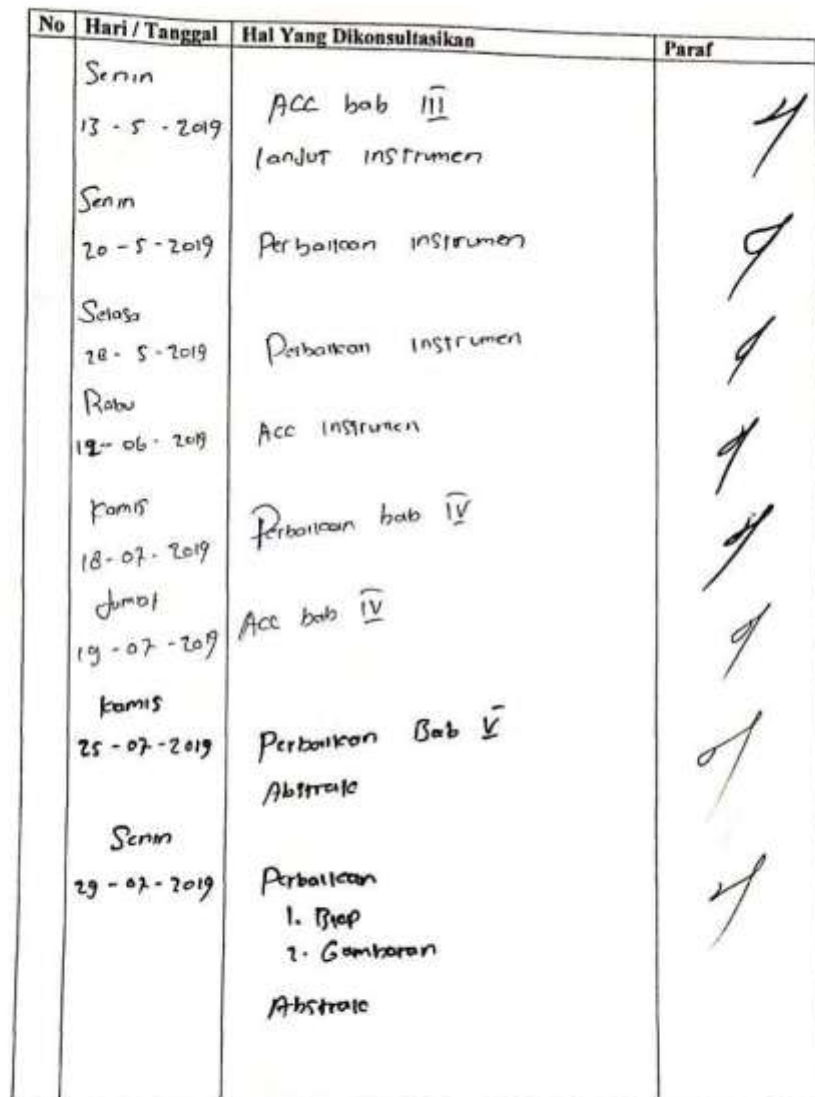 No Hari / Tanggal Hal Yang Dikonsultasikan Paraf
Senin
13 - 5 - 2019 ACC bab III
lanjut instrumen
Senin
20 - 5 - 2019 Perbaikan instrumen
Selasa
28 - 5 - 2019 Perbaikan Instrumen
Rabu
12 - 06 - 2019 Acc Instrumen
Kamis
18 - 07 - 2019 Perbaikan bab IV
Jumat
19 - 07 - 2019 Acc bab IV
Kamis
25 - 07 - 2019 Perbaikan Bab V
Abstrak
Senin
29 - 07 - 2019 Perbaikan
1.
2. Gambaran
Abstrak